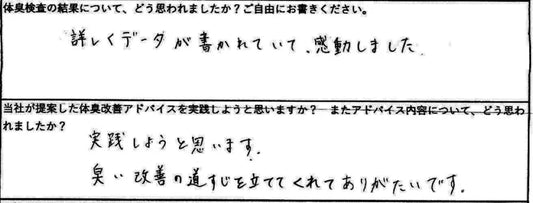 体臭検査の結果について、どう思われましたか？ご自由にお書きください。
詳しくデータが書かれていて、感動しました.
当社が提案した体臭改善アドバイスを実践しようと思いますか？　またアドバイス内容について、どう思わ
れましたか？
実践しようと思います.
臭い改善の道すじを立ててくれてありがたいです.